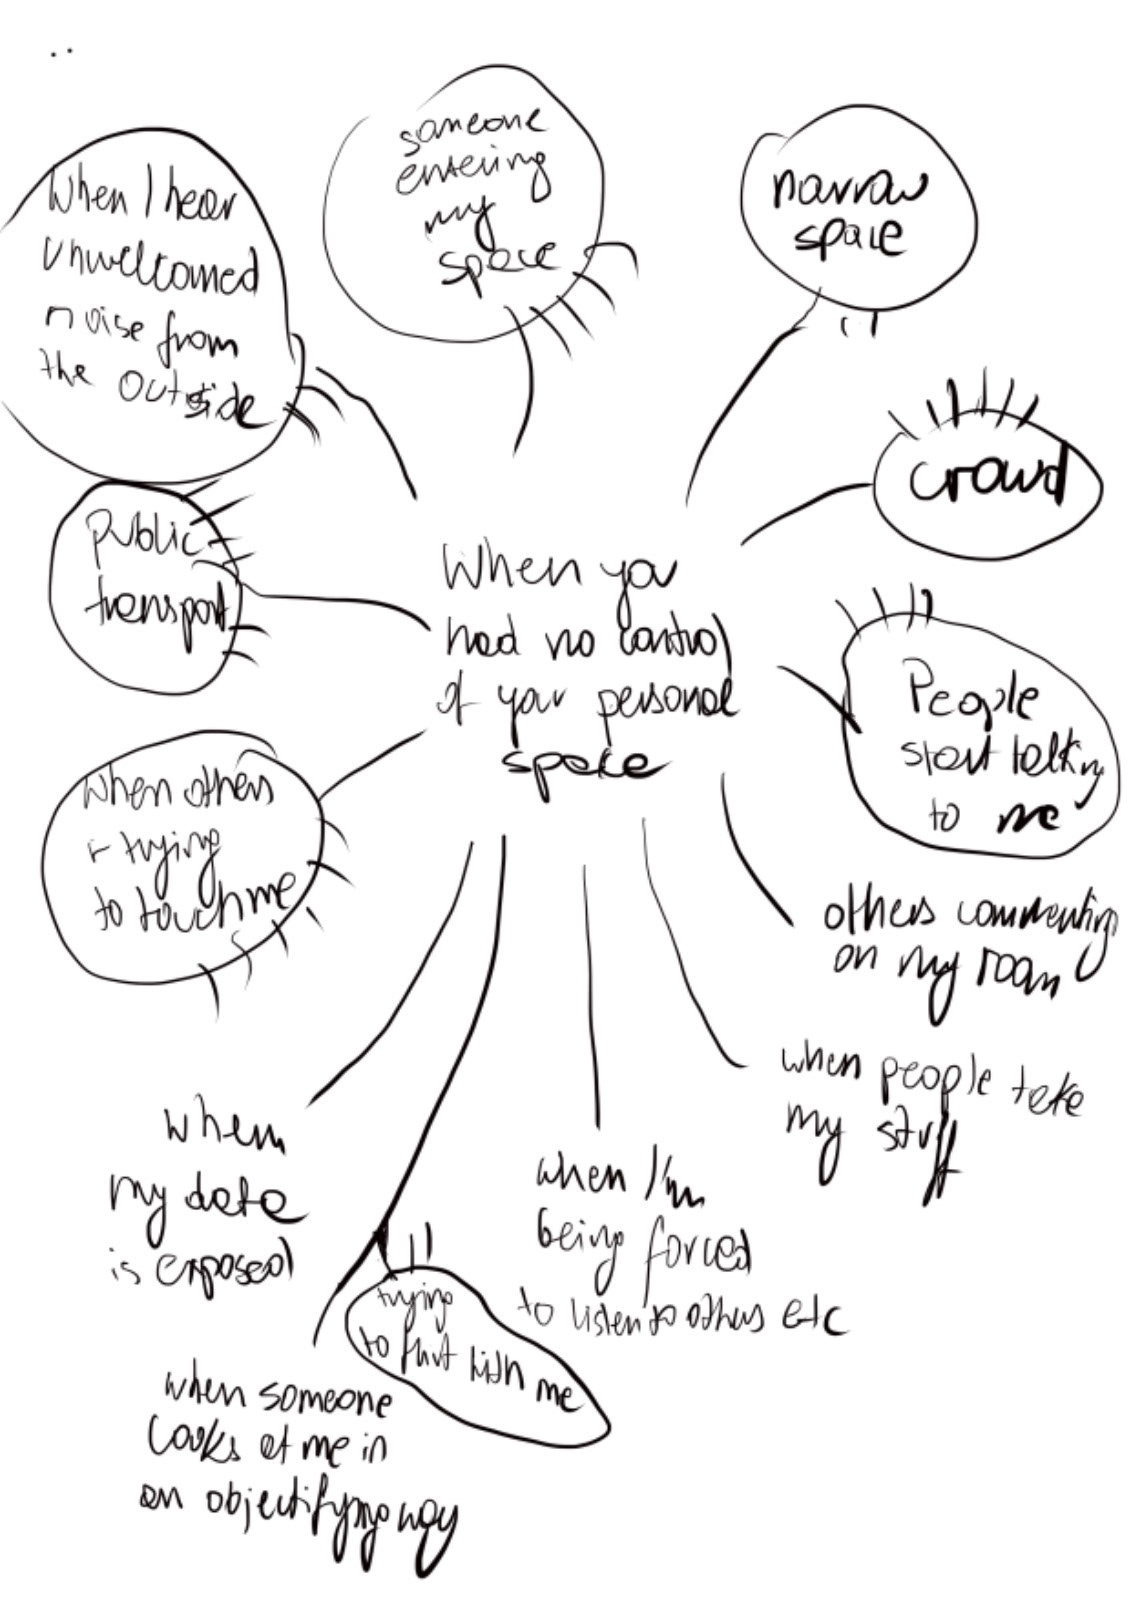 someone
entering
my
space
narrow
space
When I hear
unwelcomed
noise from
the outside
crowd
public
transport
When you
had no control
of your personal
space
People
start talking
to me
when others
r trying
to touch me
others commenting
on my room
when people take
my stuff
when
my data
is exposed
when I'm
being forced
to listen to others etc
trying
to flirt with me
when someone
looks at me in
an objectifying way